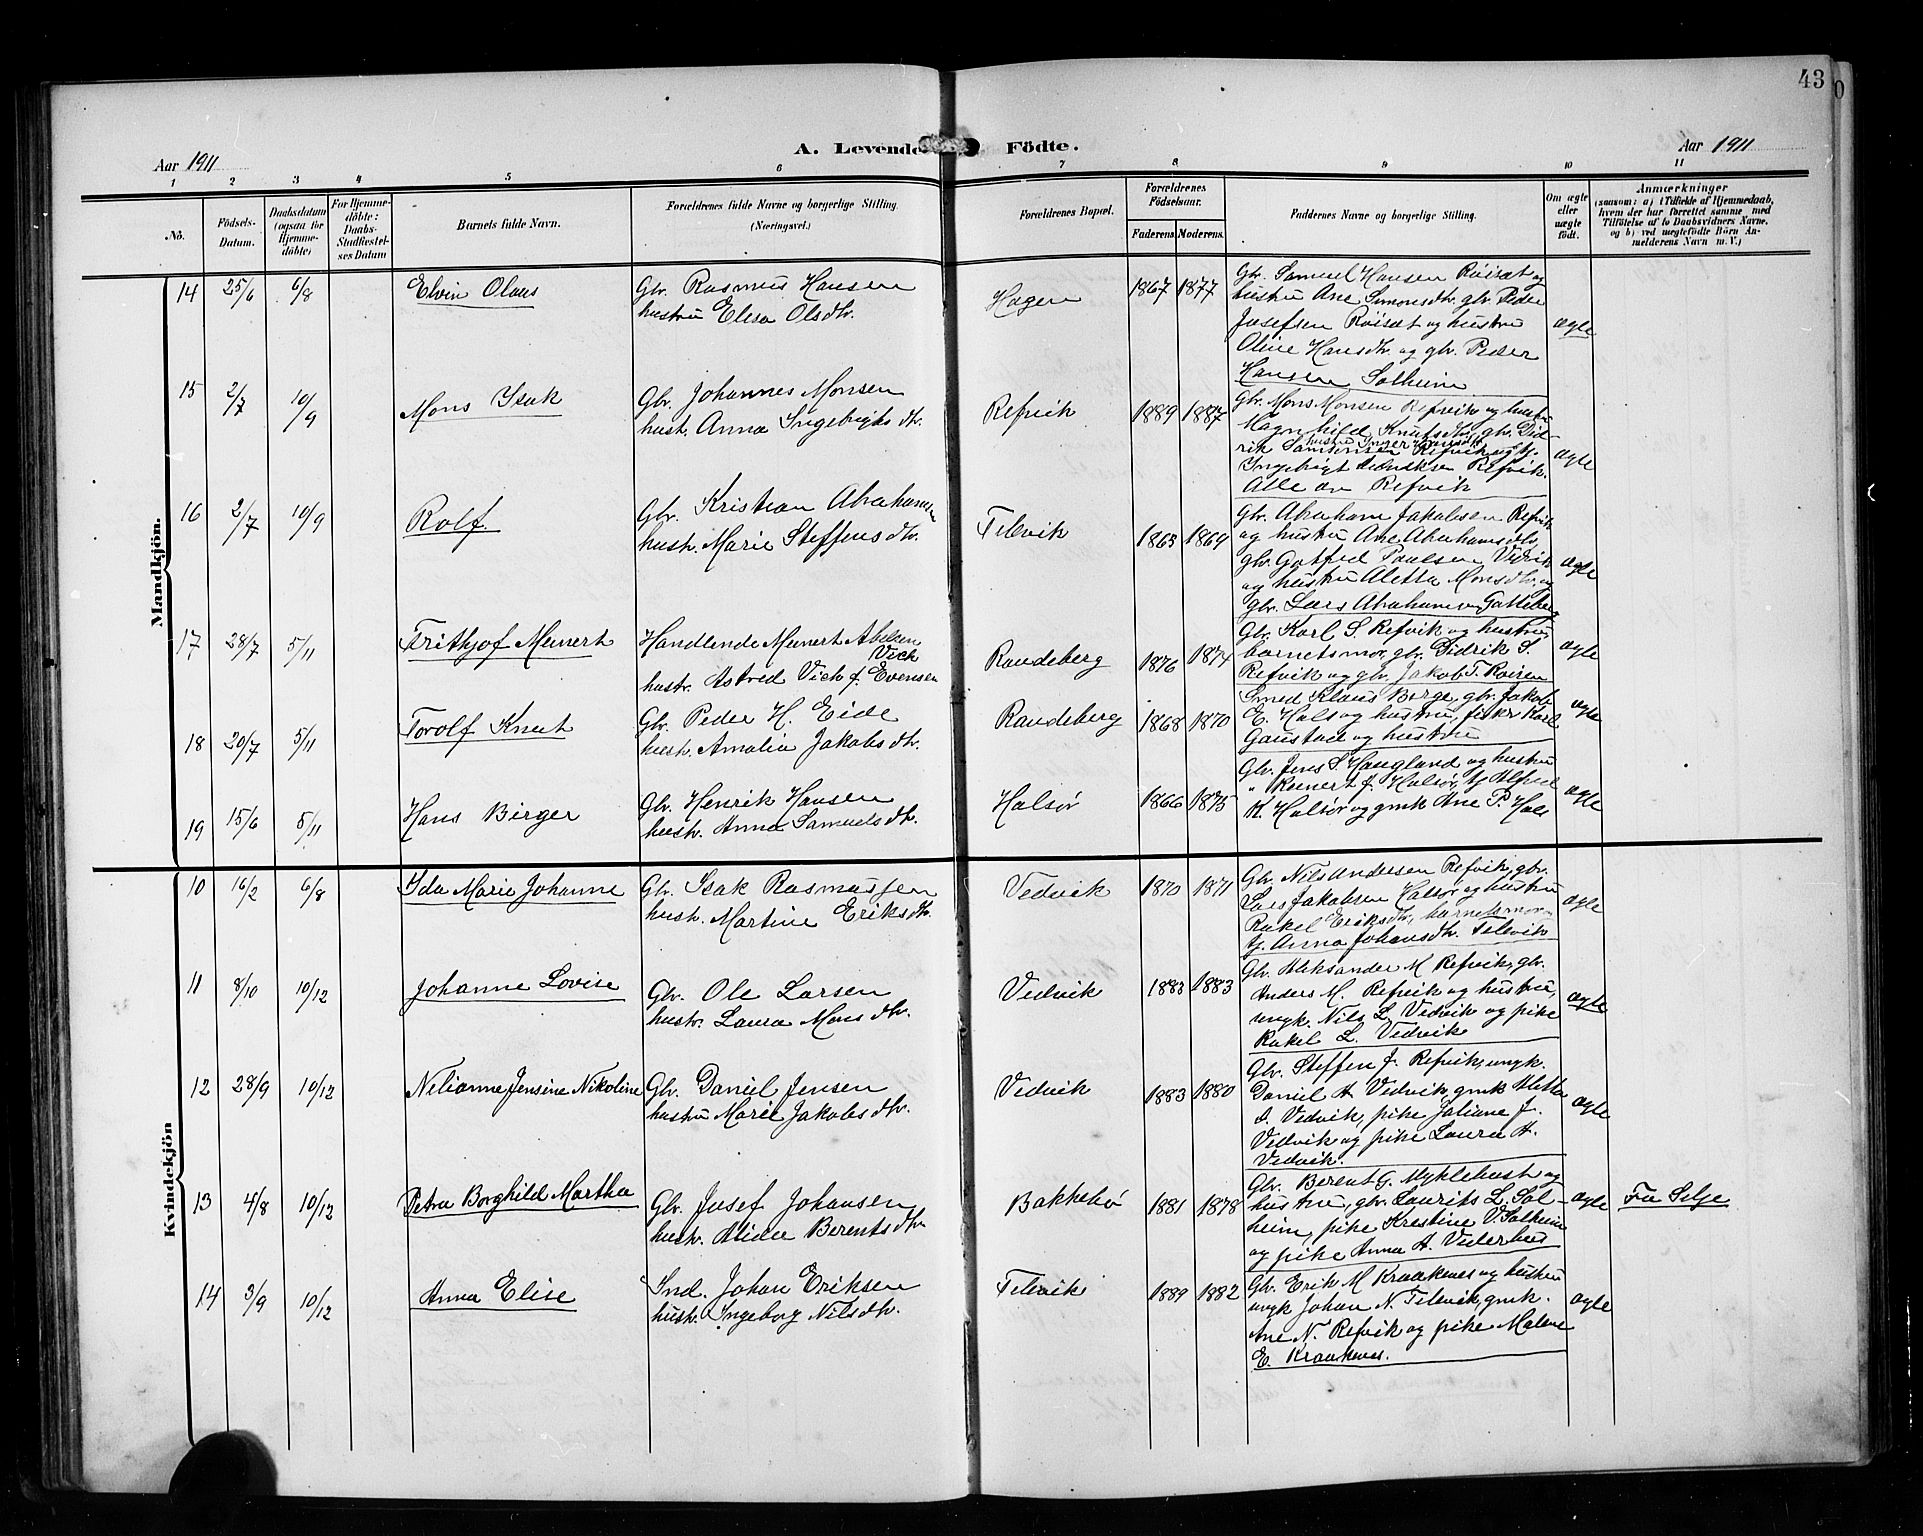 43
Aar 1911
A. Levende Födte.
Aar 1911
1 2 3 4 5 6 7 8 9 10 11
No.
Födsels-Datum.
Daabsdatum (ogsaa for Hjemme-döbte)
For Hjemme-döbte: Daabs-Stadfæstel-ses Datum
Barnets fulde Navn.
Forældrenes fulde Navne og borgerlige Stilling. (Næringsvei.)
Forældrenes Bopæl.
Forældrenes Födselsaar.
Faderens. Moderens.
Faddernes Navne og borgerlige Stilling.
Om ægte eller uægte födt.
Anmærkninger
(saasom: a) i Tilfælde af Hjemmedaab,
hvem der har forrettet samme med
Tilföielse af to Daabsvidners Navne,
og b) ved uægtefödte Börn An-
melderens Navn m. V.)
Mandkjön.
14 25/6 6/8 Elvin Olaus
Gbr. Rasmus Hansen
hustru Elisa Olsdtr.
Hagen 1867 1877
Gbr. Samuel Hansen Röisæt og
hustru Ane Simonsdtr. gbr. Peder
Josefsen Röisæt og hustru
Oline Hansdtr. og gbr. Peder
Hansen Solheim
ægte
15 2/7 10/9 Mons Isak
Gbr. Johannes Monsen
hust. Anna Ingebrigtsdtr.
Refvik 1889 1887
Gbr. Mons Monsen Refvik og hustru
Magnhild Knutsdtr, gbr. Did-
rik
Refvik
Ingebrigt Refvik.
Alle av Refvik
ægte
16 2/7 10/9 Rolf
Gbr. Kristian Abrahamsen
hustr. Marie Steffensdtr.
Tilevik 1863 1869
Gbr. Abraham Jakobsen Refvik
og hustru Ane Abrahamsdtr,
gbr. Gotfred Paulsen Vedvik
og hustru Aletta Monsdtr. og
gbr. Lars Abrahamsen Gotteberg
ægte
17 28/7 5/11 Frithjof Meinert
Handlende Meinert Abelsen Vick
hustr. Astrid Vick f. Evensen
Raudeberg 1876 1874
Gbr. Karl S. Refvik og hustru,
barnetsmor, gbr. Didrik S.
Refvik og gbr. Jakob T. Roisen
ægte
18 20/7 5/11 Torolf Knut
Gbr. Peder H. Eide
hust. Amalia Jakobsdtr.
Raudeberg 1868 1870
Smed Klaus Berge, gbr. Jakob
E. Hals og hustru, fisker Karl
Gaustad og hustru
ægte
19 15/6 5/11 Hans Birger
Gbr. Henrik Hansen
hustr. Anna Samuelsdtr.
Halsör 1866 1875
Gbr. Jens S. Haugland og hustru
" Reinert J. Halsör, Alfred
K. Halsör og gmk Ane P. Hals
ægte
Kvindekjön
10 16/2 6/8 Ida Marie Johanne
Gbr. Isak Rasmussen
hustr. Martine Eriksdtr.
Vedvik 1870 1871
Gbr. Nils Andersen Refvik, gbr.
Lars Jakobsen Halsör og hustru
Rakel Eriksdtr, barnetsmor og
Anna Johansdtr Tilevik
ægte
11 8/10 10/12 Johanne Lovise
Gbr. Ole Larsen
hustr. Laura Monsdtr.
Vedvik 1883 1883
Gbr. Aleksander M Refvik, gbr.
Anders M. Refvik og hustru,
ungk. Nils L Vedvik og pike
Rakel L. Vedvik
ægte
12 28/9 10/12 Nelianne Jensine Nikoline
Gbr. Daniel Jensen
hustru Marie Jakobsdtr.
Vedvik 1883 1880
Gbr. Steffen J. Refvik, ungk.
Daniel A Vedvik, gmk Aletta
D. Vedvik, pike Joliane J.
Vedvik og pike Laura A.
Vedvik.
ægte
13 4/8 10/12 Petra Borghild Marthea
Gbr. Josef Johansen
hustr. Alida Berentsdtr
Bakkebö 1881 1878
Gbr. Berent G. Myklebust og
hustru, gbr. Laurits L. Sol-
heim, pike Kristine V. Solheim
og pike Anna A. Vederhus
ægte
Fra Selje
14 3/9 10/12 Anna Elise
Ind. Johan Eriksen
hustr. Ingeborg Nilsdtr.
Tilevik 1889 1882
Gbr. Erik M Kraakenes og hustru
ungk Johan N. Tilevik, gmk.
Ane N. Refvik og pike Malene
E. Kraakenes.
ægte